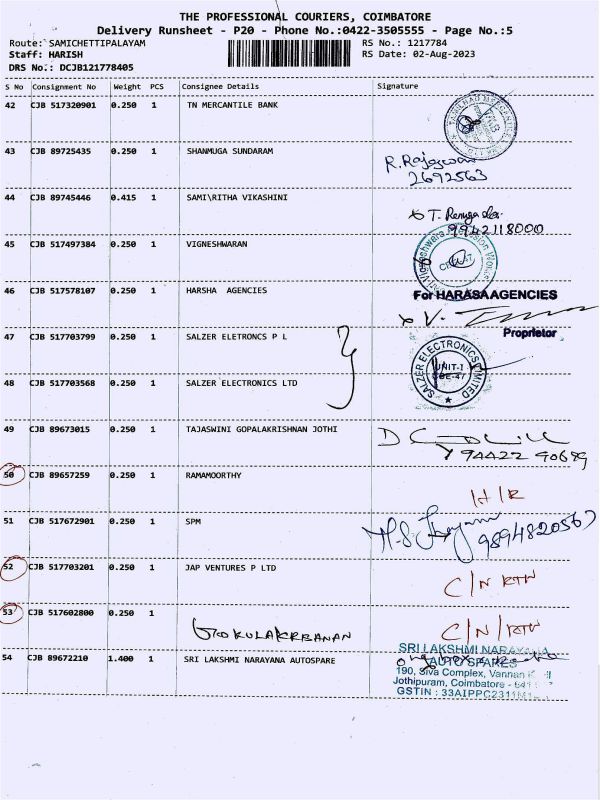 THE PROFESSIONAL COURIERS, COIMBATORE
Delivery Runsheet - P20 - Phone No.:0422-3505555 - Page No.:5
Route: SAMICHETTIPALAYAM RS No.: 1217784
Staff: HARISH RS Date: 02-Aug-2023
DRS No.: DCJB121778405
S No Consignment No Weight PCS Consignee Details Signature
42 CJB 517320901 0.250 1 TN MERCANTILE BANK
43 CJB 89725435 0.250 1 SHANMUGA SUNDARAM
R. Rajeswari
2692563
44 CJB 89745446 0.415 1 SAMI\RITHA VIKASHINI
T. Renuga
9942118000
45 CJB 517497384 0.250 1 VIGNESHWARAN
46 CJB 517578107 0.250 1 HARSHA AGENCIES
For HARASA AGENCIES
Proprietor
47 CJB 517703799 0.250 1 SALZER ELETRONCS P L
SALZER ELECTRONICS LIMITED
UNIT-1
48 CJB 517703568 0.250 1 SALZER ELECTRONICS LTD
49 CJB 89673015 0.250 1 TAJASWINI GOPALAKRISHNAN JOTHI
94422 90689
50 CJB 89657259 0.250 1 RAMAMOORTHY
H/R
51 CJB 517672901 0.250 1 SPM
9894820567
52 CJB 517703201 0.250 1 JAP VENTURES P LTD
C/N RTN
53 CJB 517602800 0.250 1
GOKULAKRBANAN
C/N/RTN
54 CJB 89672210 1.400 1 SRI LAKSHMI NARAYANA AUTOSPARE
SRI LAKSHMI NARAYANA
AUTO SPARES
190, Siva Complex, Vannan
Jothipuram, Coimbatore - 641
GSTIN : 33AIPPC2311M1